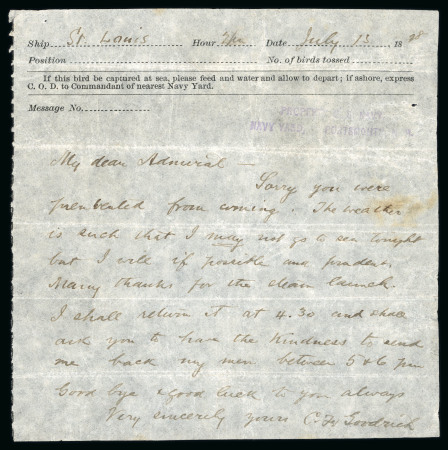 Ship St. Louis Hour 2pm Date July 13 1898
Position No. of birds tossed
If this bird be captured at sea, please feed and water and allow to depart; if ashore, express
C. O. D. to Commandant of nearest Navy Yard.
Message No.
NAVY YARD, PORTSMOUTH
My dear Admiral —
Sorry you were
prevented from coming. The weather
is such that I may not go to sea tonight
but I will if possible and prudent.
Many thanks for the steam launch.
I shall return it at 4.30 and shall
ask you to have the kindness to send
me back my men between 5 & 6 pm
Good bye & good luck to you always
Very sincerely yours C. F. Goodrich